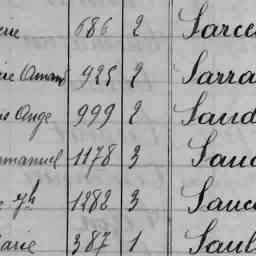 686 2 Sarce
925 2 Sarra
Ange 999 2 Saud
mmanuel 1178 3 Sauc
Jh 1282 3 Sauce
arie 387 1 Saul